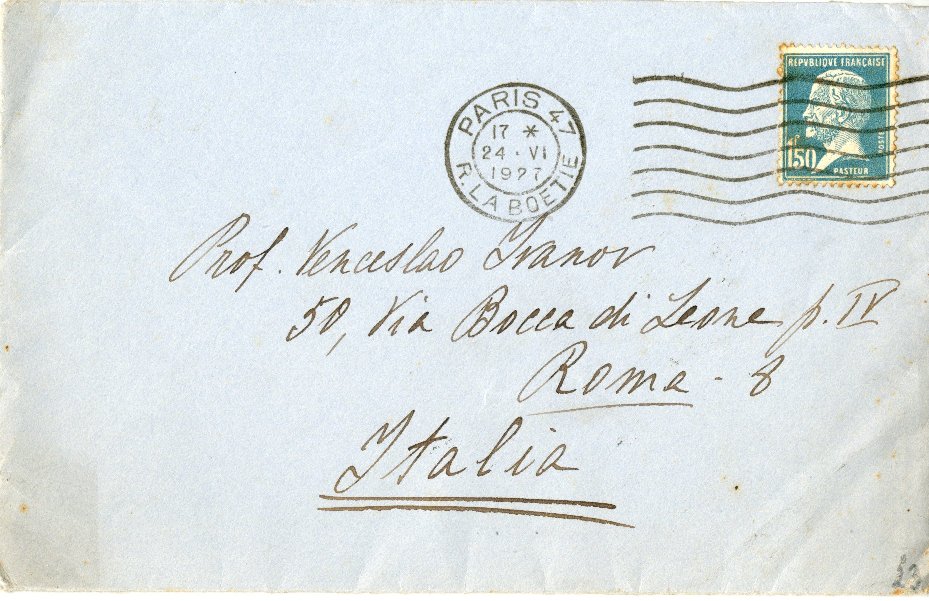 REPVBLIQUE FRANÇAISE
POSTES
1F50
PASTEUR
PARIS 47
17 *
24 · VI
1927
R. LA BOETIE
Prof. Venceslao Ivanov
50, Via Bocca di Leone p. IV
Roma - 8
Italia